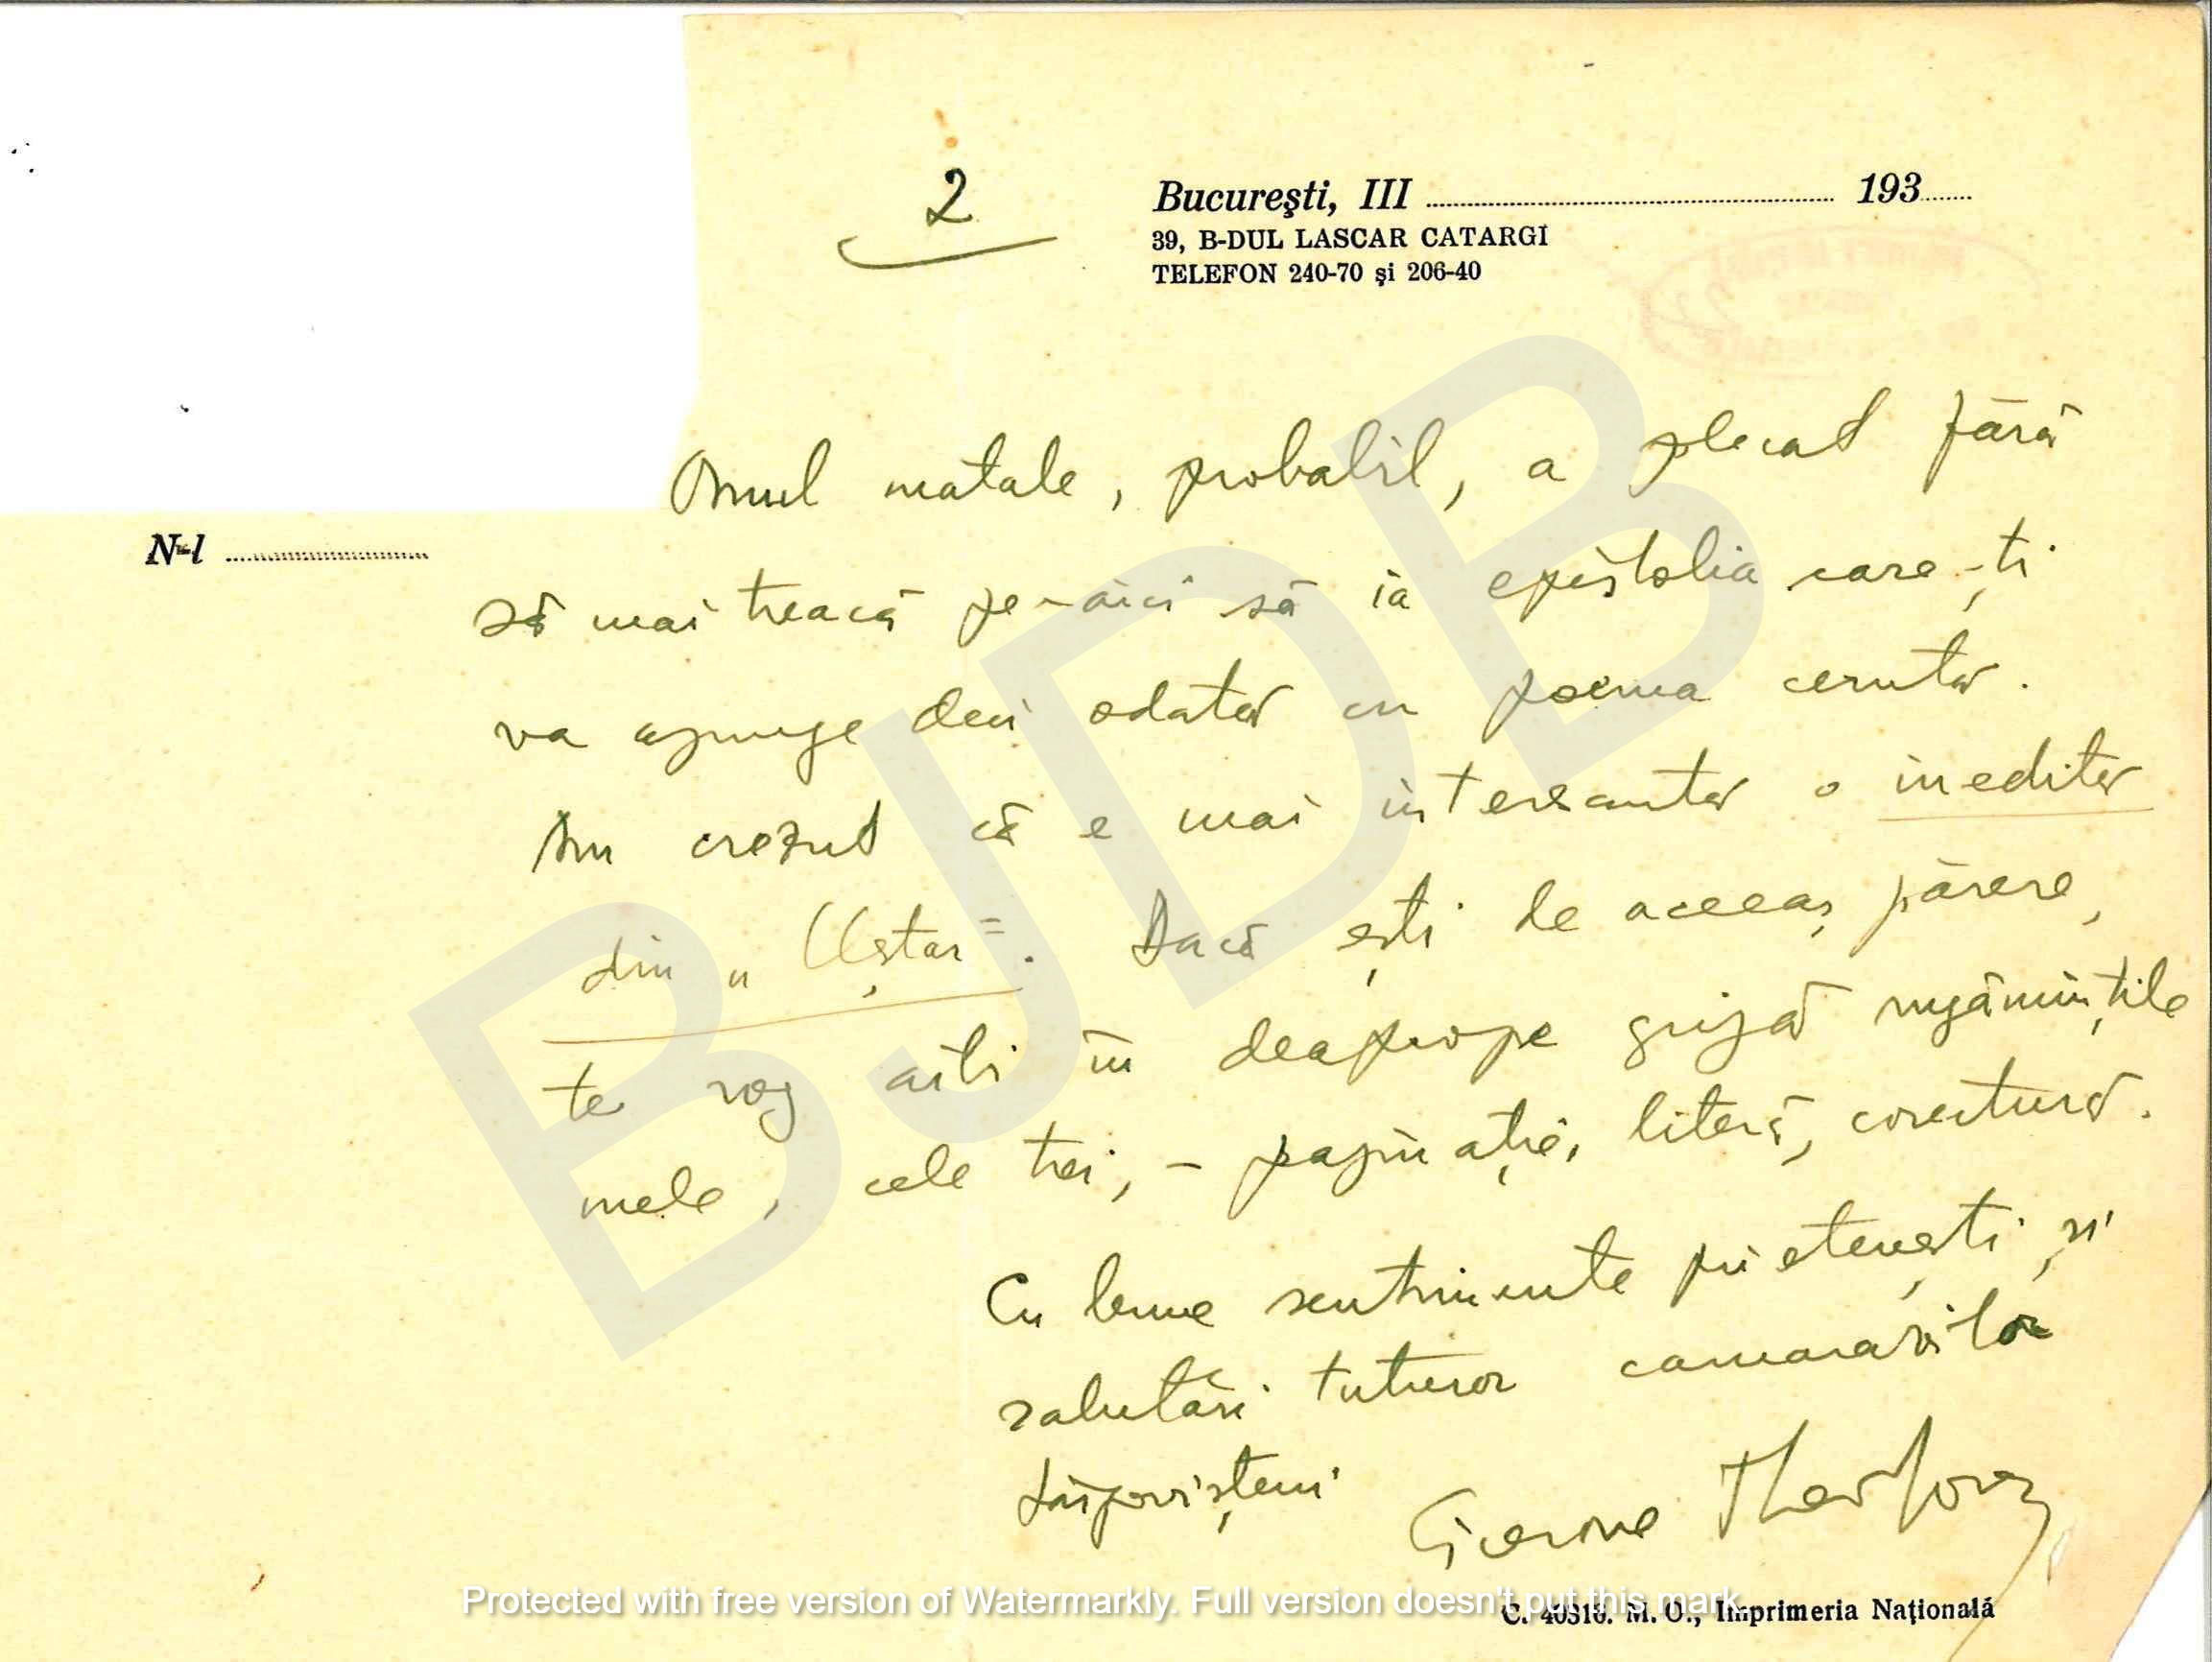 2
București, III ........ 193....
39, B-DUL LASCAR CATARGI
TELEFON 240-70 și 206-40
N-l ........
Omul matale, probabil, a plecat fără
să mai treacă pe-aici să ia epistolia care-ți
va ajunge deci odată cu poema cerută.
Am crezut că e mai interesantă o inedită
din „Uștar". Dacă ești de aceeaș părere,
te rog aibi în deaproape grijă rugămințile
mele, cele trei, - paginație, literă, corectură.
Cu bune sentimente prietenești și
salutări tuturor camarazilor
târgovișteni
Cicerone Theodorescu
C. 40316. M. O., Imprimeria Națională
BJDB
Protected with free version of Watermarkly. Full version doesn't put this mark.